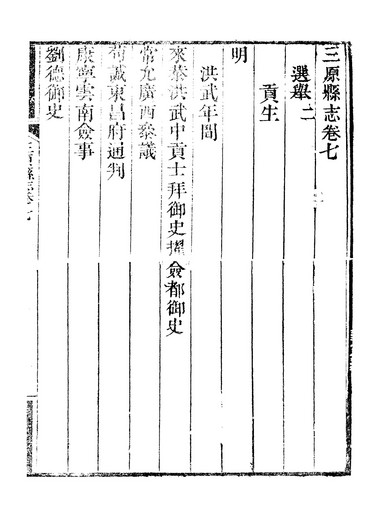 三原縣志卷七
選舉二
貢生
明
洪武年間
來恭洪武中貢士拜御史擢僉都御史
常允廣西叅議
荀誠東昌府通判
康寧雲南僉事
劉德御史
三原縣志卷七